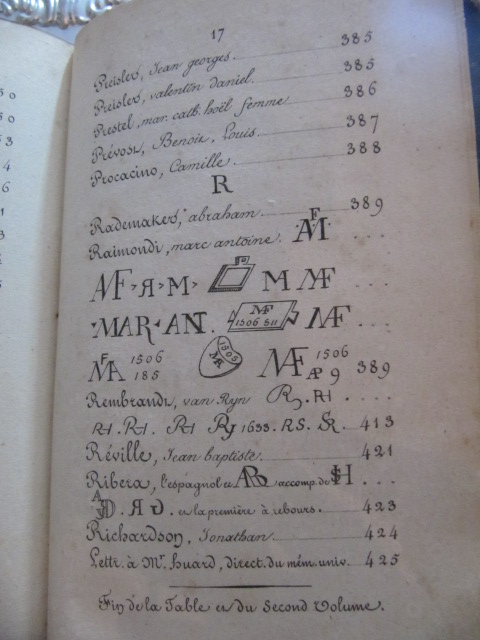 17
Preisler, Jean georges. 385
Preisler, valentin daniel. 385
Prestel, mar. cath. hoël femme 386
Prévost, Benoit, Louis 387
Procacino, Camille. 388
R
Rademaker, abraham 389
Raimondi, marc antoine. AF M ...
MF R M M MF ...
MAR ANT. MF 1506 S 11 MF ...
F MA 1506 185 1505 MA MAF 1506 Æ 9 389
Rembrandt, van Ryn R. RH ....
RH. RH. RH RJ 1633. RS. SR. 413
Réville, Jean baptiste. 421
Ribera, l'espagnol et AB accomp. de H ...
JD. R D. et la première à rebours. 423
Richardson, Jonathan 424
Lettr. à Mr. huard, direct. du mém. univ. 425
Fin de la Table et du Second Volume.